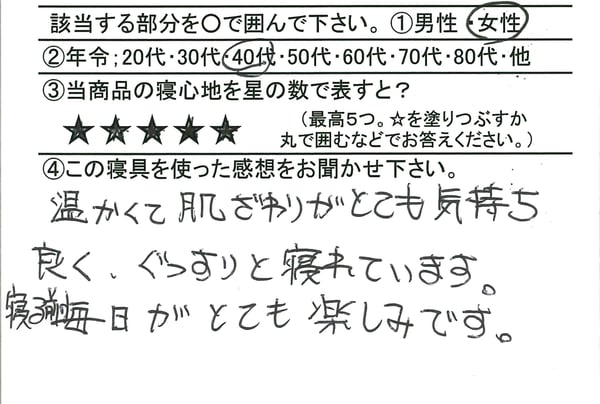 該当する部分を〇で囲んで下さい。①男性・女性
②年令;20代・30代・40代・50代・60代・70代・80代・他
③当商品の寝心地を星の数で表すと?
★★★★★ (最高5つ。☆を塗りつぶすか
丸で囲むなどでお答えください。)
④この寝具を使った感想をお聞かせ下さい。
温かくて肌ざわりがとても気持ち
良く、ぐっすりと寝れています。
寝る前毎日がとても楽しみです。